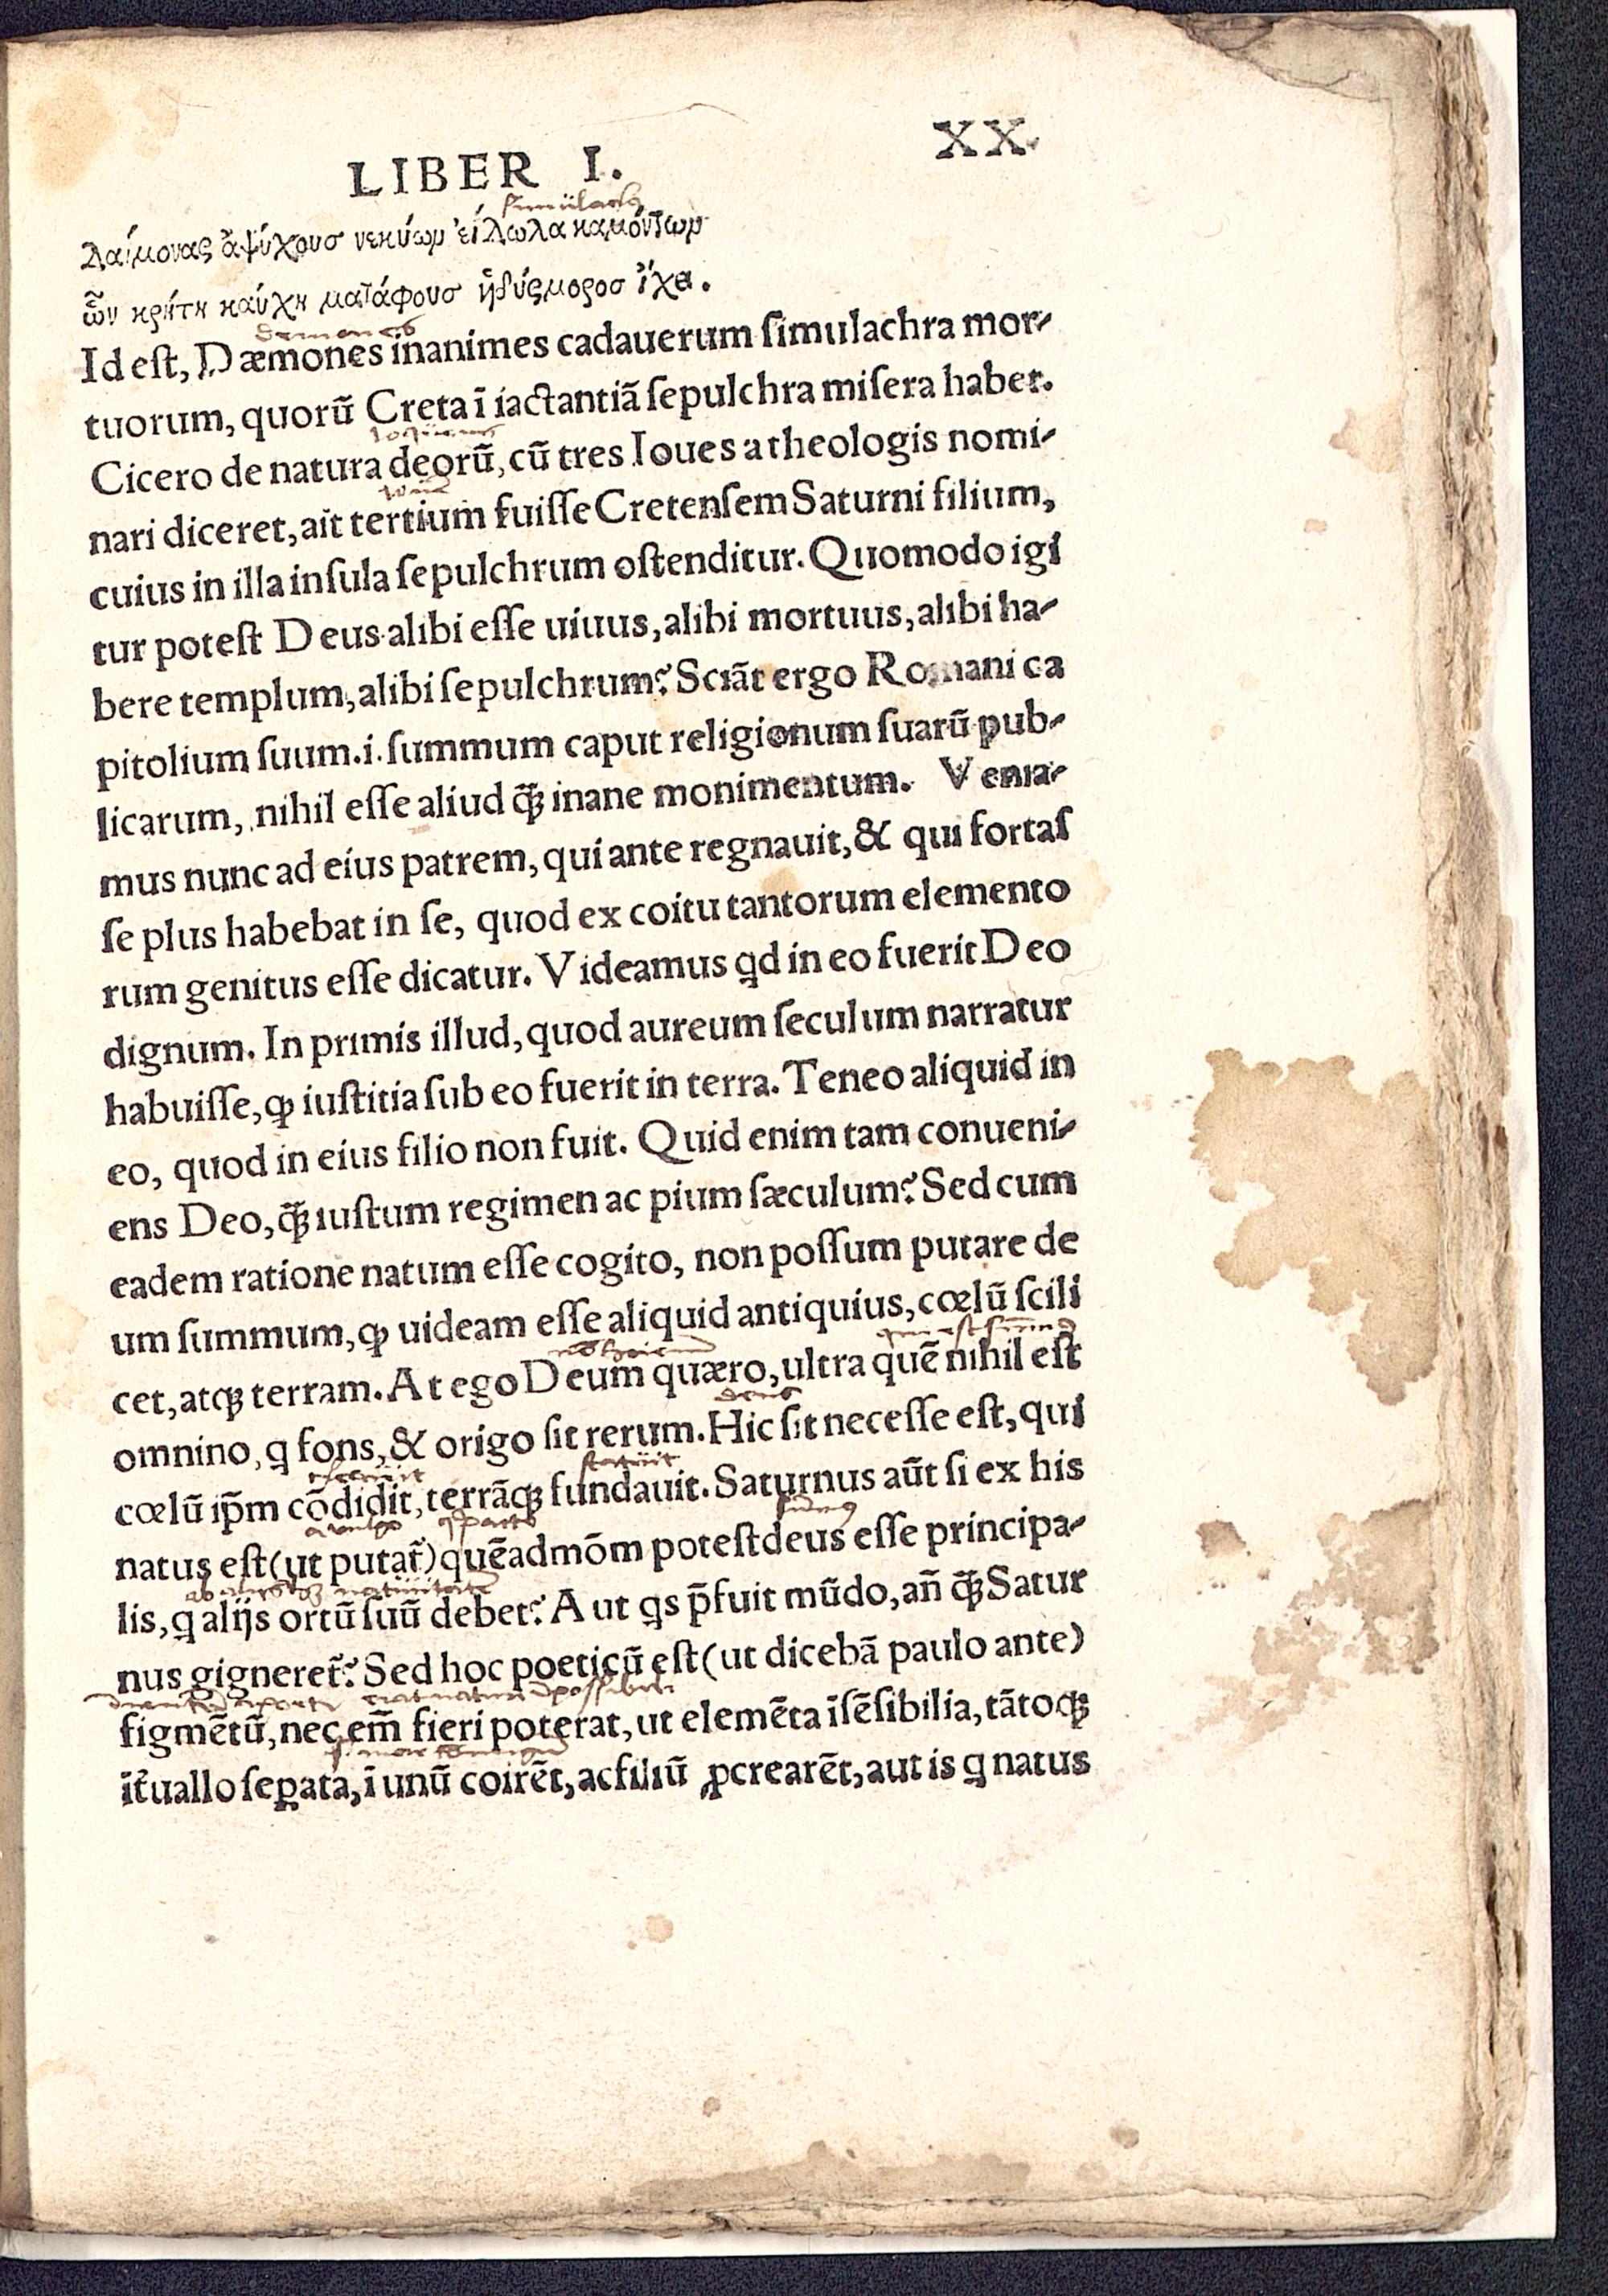 LIBER I. XX.
δαίμονας ἀψύχουσ νεκύων εἴδωλα καμόντων
ὧν κρήτη καύχημα τάφουσ ἡ δύςμοροσ ἴχει.
Id eſt, Dæmones inanimes cadauerum ſimulachra mor-
tuorum, quorũ Creta ĩ iactantiã ſepulchra miſera habet.
Cicero de natura deorũ, cũ tres Ioues a theologis nomi-
nari diceret, ait tertium fuiſſe Cretenſem Saturni filium,
cuius in illa inſula ſepulchrum oſtenditur. Quomodo igi
tur poteſt Deus alibi eſſe uiuus, alibi mortuus, alibi ha-
bere templum, alibi ſepulchrum? Sciãt ergo Romani ca
pitolium ſuum .i. ſummum caput religionum ſuarũ pub-
licarum, nihil eſſe aliud q̃ꝫ inane monimentum. Venia-
mus nunc ad eius patrem, qui ante regnauit, & qui fortaſ
ſe plus habebat in ſe, quod ex coitu tantorum elemento
rum genitus eſſe dicatur. Videamus qd in eo fuerit Deo
dignum. In primis illud, quod aureum ſeculum narratur
habuiſſe, ꝙ iuſtitia ſub eo fuerit in terra. Teneo aliquid in
eo, quod in eius filio non fuit. Quid enim tam conueni-
ens Deo, q̃ꝫ iuſtum regimen ac pium ſæculum? Sed cum
eadem ratione natum eſſe cogito, non poſſum putare de
um ſummum, ꝙ uideam eſſe aliquid antiquius, cœlũ ſcili
cet, atqꝫ terram. At ego Deum quæro, ultra quẽ nihil eſt
omnino, q fons, & origo ſit rerum. Hic ſit neceſſe eſt, qui
cœlũ ip̃m cõdidit, terrãqꝫ fundauit. Saturnus aũt ſi ex his
natus eſt (ut putat̃) quẽadmõm poteſt deus eſſe principa-
lis, q alijs ortũ ſuũ debet? Aut qs p̃fuit mũdo, añ q̃ꝫ Satur
nus gigneret̃? Sed hoc poeticũ eſt (ut dicebã paulo ante)
figmẽtũ, nec em̃ fieri poterat, ut elemẽta ĩſẽſibilia, tãtoqꝫ
ĩt̃uallo ſeꝑata, ĩ unũ coirẽt, ac filiũ ꝓcrearẽt, aut is q natus